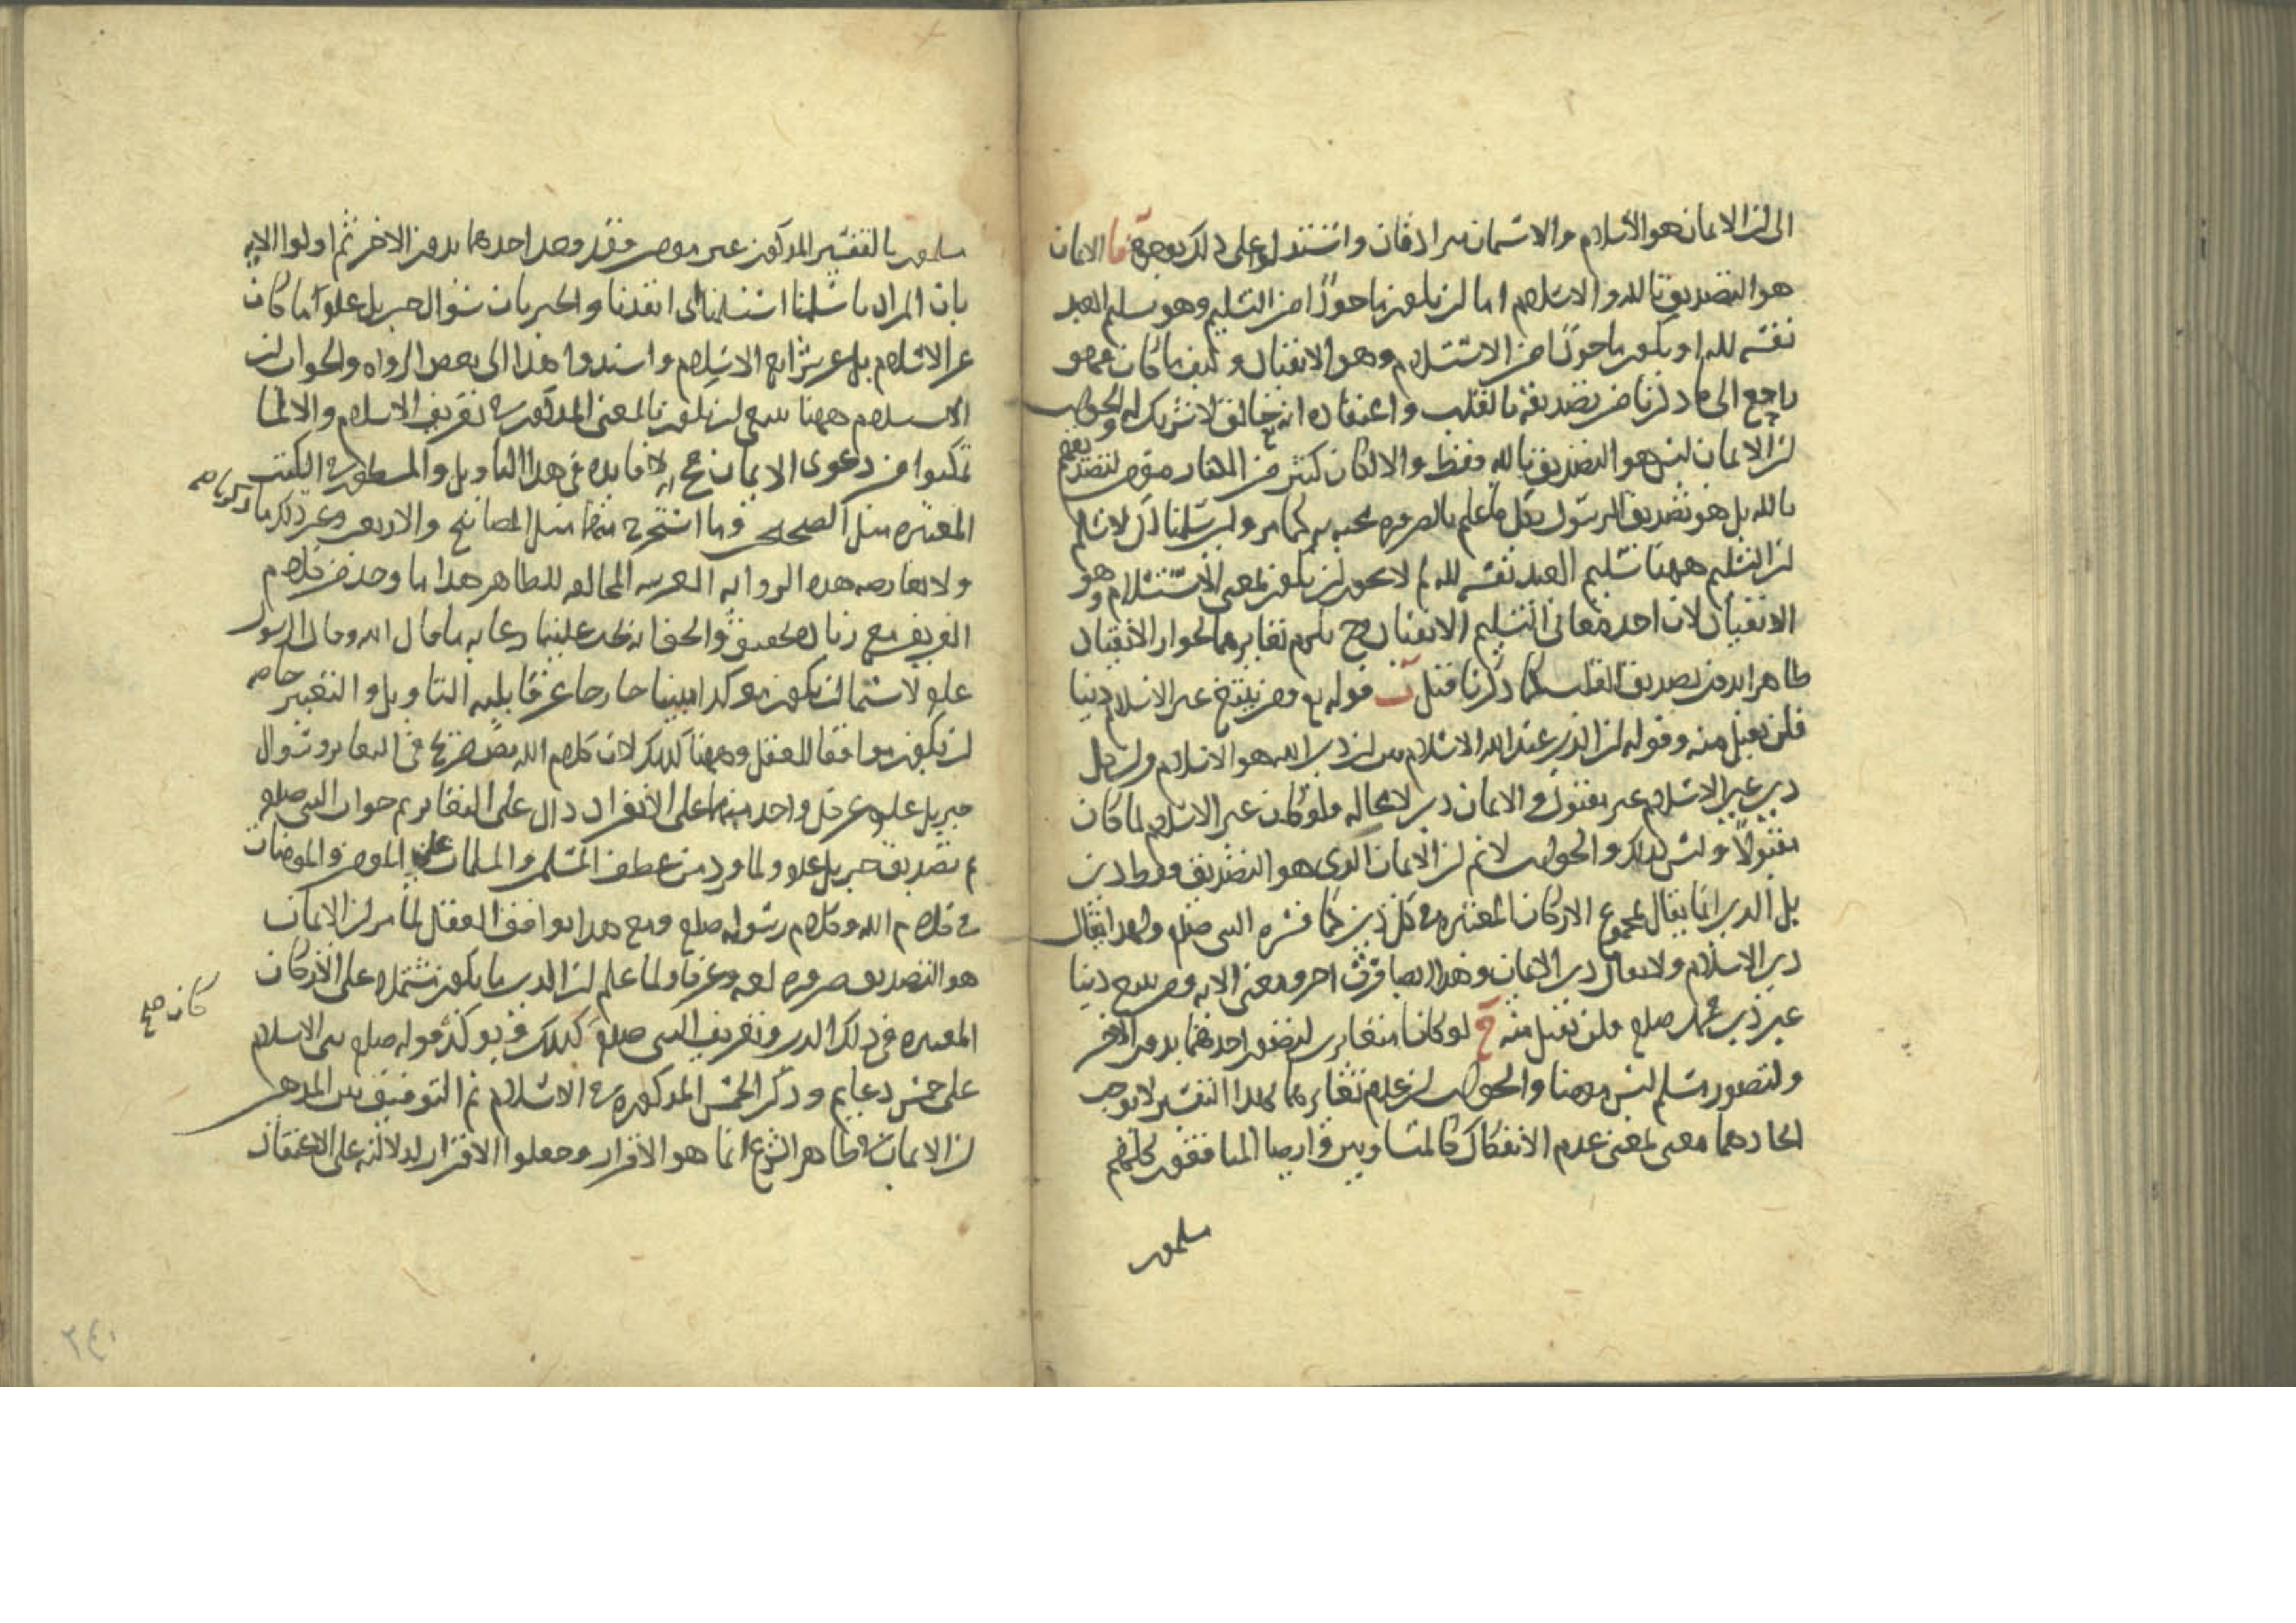 الى ان الايمان هو الاسلام والاسمان مترادفان واستدلوا على ذلك بوجوه آ الايمان
هو التصديق بالله والاسلام اما ان يكون ماخوذا من التسليم وهو تسليم العبد
نفسه لله او يكون ماخوذا من الاستسلام وهو الانقياد وكيف ما كان فهو
راجع الى ما ذكرنا من تصديقه بالقلب واعتقاده انه خالق لا شريك له والجواب
ان الايمان ليس هو التصديق بالله فقط والا لكان كثير من الكفار مؤمنا لتصديقهم
بالله بل هو تصديق الرسول بكل ما علم بالضرورة مجيئه به كما مر ولئن سلمنا لكن لا نسلم
ان التسليم ههنا تسليم العبد نفسه لله لم لا يجوز ان يكون بمعنى الاستسلام وهو
الانقياد لان احد معانى التسليم الانقياد وح يلزم تغايرهما لجواز الانقياد
ظاهرا بدون تصديق القلب كما ذكرنا قبل ب قوله تع ومن يبتغ غير الاسلام دينا
فلن يقبل منه وقوله ان الدين عند الله الاسلام بين ان دين الله هو الاسلام وان كل
دين غير الاسلام غير مقبول والايمان دين لا محالة فلو كان غير الاسلام لما كان
مقبولا وليس كذلك والجواب لا نم ان الايمان الذى هو التصديق فقط دين
بل الدين انما يقال لمجموع الاركان المعتبرة فى كل دين كما فسره النبى صلعم ولهذا يقال
دين الاسلام ولا يقال دين الايمان وهذا ايضا فرق اخر ومعنى الاية ومن يبتغ دينا
غير دين محمد صلعم فلن يقبل منه ج لو كانا متغايرين لتصور احدهما بدون الاخر
ولتصور مسلم ليس مومنا والجواب ان عدم تغايرهما بهذا التفسير لا يوجب
اتحادهما معنى بمعنى عدم الانفكاك كالمتساويين وايضا المنافقون كلهم
مسلمون
مسلمون بالتفسير المذكور غير مومنين فقد وجد احدهما بدون الاخر ثم اولوا الاية
بان المراد باسلمنا استسلمنا اى انقدنا والخبر بان سؤال جبريل علم انما كان
عن الاسلام بل عن شرايع الاسلام واسندوا هذا الى بعض الرواة والجواب ان
الاسلام ههنا ينبغى ان يكون بالمعنى المذكور فى تعريف الاسلام والا لما
تمكنوا من دعوى الايمان ح لا فايدة فى هذا التاويل والمسطور فى الكتب
المعتبرة مثل الصحيحين وما استخرج منهما مثل المصابيح والاربعين وغير ذلك ما ذكرناه صح
ولا يعارضه هذه الرواية الغريبة المخالفة للظاهر هذا ما وجد من كلام
الفريقين مع زيادة تحقيق والحق انه يجب علينا رعاية ما قال الله وقال الرسول
علم لا سيما ان يكون موكدا مبينا خارجا عن قابلية التاويل والتغيير خاصة
ان يكون موافقا للعقل وههنا كذلك لان كلام الله نص صريح فى التغاير وسؤال
جبريل علم عن كل واحد منهما على الانفراد دال على التغاير ثم جواب النبى صلعم
ثم تصديق جبريل علم ولما ورد من عطف المسلمين والمسلمات على المومنين والمومنات
فى كلام الله وكلام رسوله صلعم ومع هذا يوافق العقل لما مر ان الايمان
هو التصديق ضرورة لغة وعرفا ولما علم ان الدين ما يكون مشتملا على الاركان
كان صح
المعتبرة فى ذلك الدين وتعريف النبى صلعم كذلك ويؤكد قوله صلعم بنى الاسلام
على خمس دعايم وذكر الخمس المذكورة فى الاسلام ثم التوفيق بين المذهبين
ان الايمان فى ظاهر الشرع انما هو الاقرار وجعلوا الاقرار لدلالته على الاعتقاد
٢٤٠